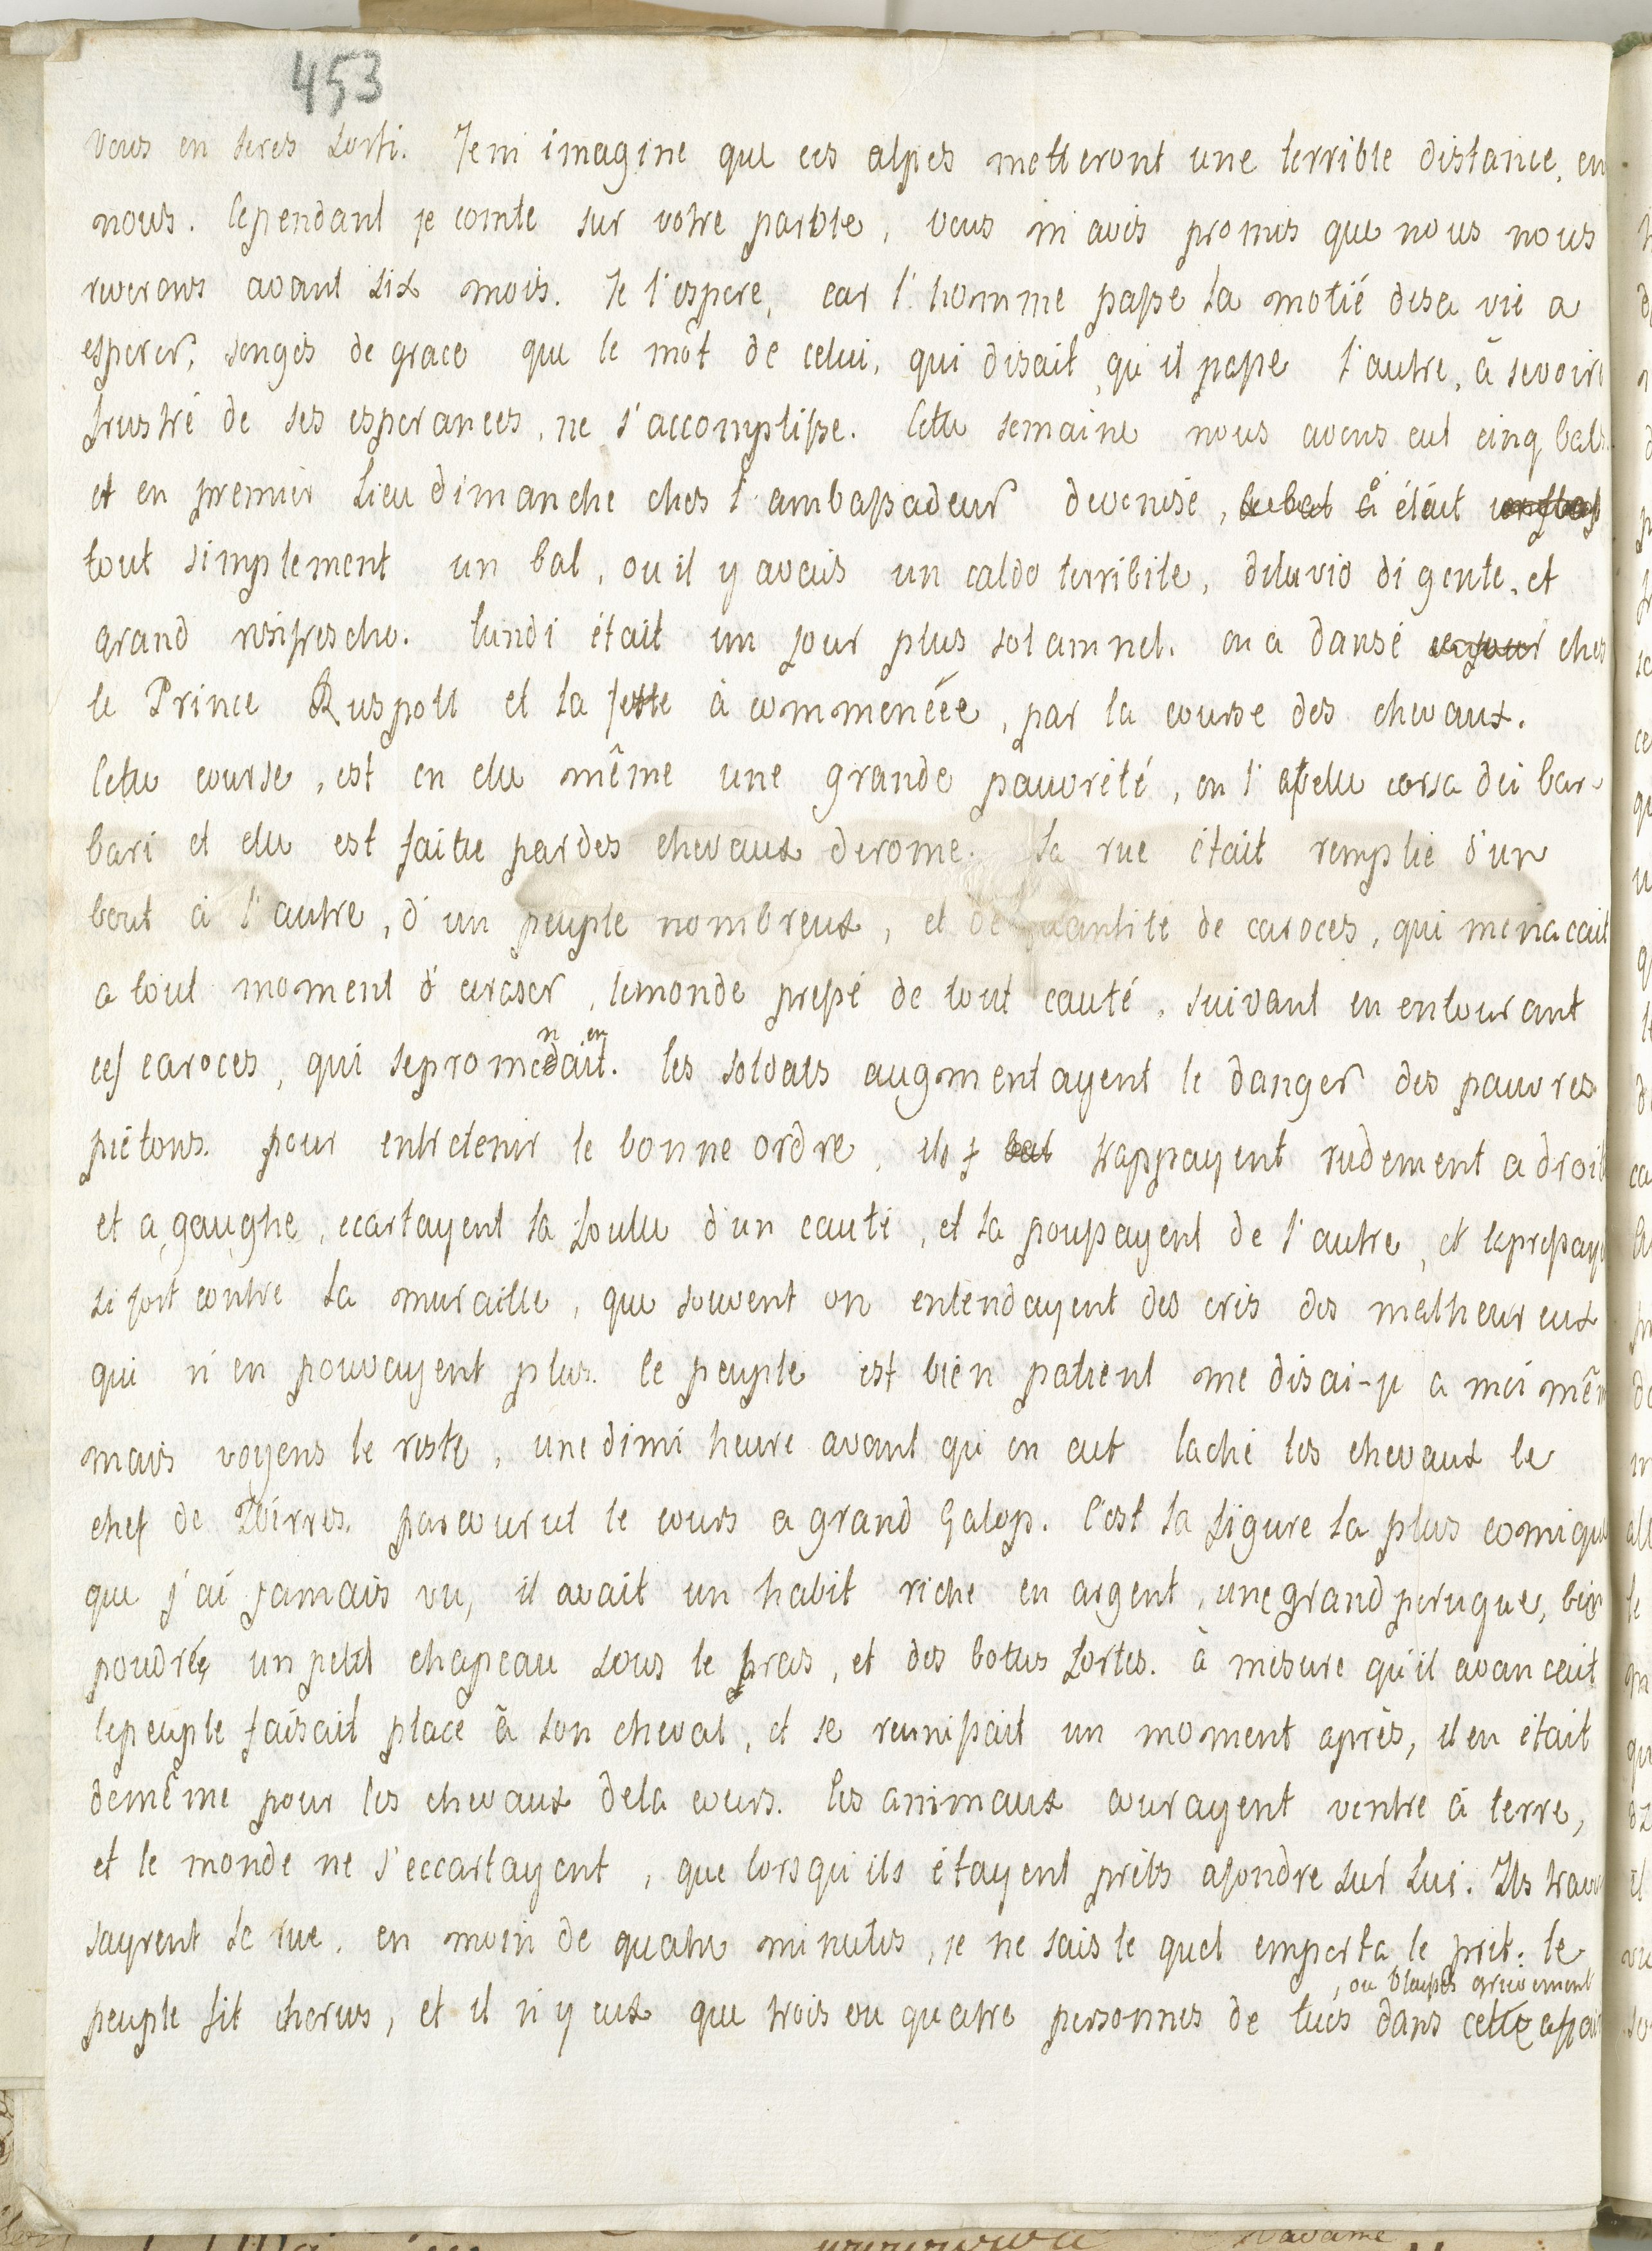 453
vous en seres sorti. Je m'imagine que ces alpes metteront une terrible distance, en
nous. Cependant je comte sur votre parole, vous m'avés promis que nous nous
reverons avant six mois. Je l'espere, car l'homme passe la motié de sa vie a
esperer, songés de grace que le môt de celui, qui disait qu'il passe l'autre, à sevoire
frustré de ses esperances, ne s'accomplisse. Cette semaine nous avons eut cinq bals
et en premier lieu dimanche chés l'ambassadeur de venise, le bal à était
tout simplement un bal, ou il y avais un caldo terribile, diluvio di gente, et
grand resifrescho. lundi était un jour plus solamnel. on a dansé ce jour chés
le Prince Ruspoli et la fette à commencée, par la course des chevaux.
Cette course, est en elle même une grande pauvreté, on l'apelle corsa dei bar-
bari et elle est faite par des chevaux de rome. la rue était remplie d'un
bout à l'autre, d'un peuple nombreux, et de quantité de caroces, qui menacait
a tout moment d'ecraser, le monde pressé de tout cauté, suivant en entourant
ces caroces, qui se promedait.
n en
les soldats augmentayent le danger des pauvres
piétons. pour entretenir le bonne ordre, ils f bat frappayent rudement a droit
et a gaughe, ecartayent la foule d'un cauté, et la poussayent de l'autre, et la pressaye
si fort contre la muraille, que souvent on entendayent des cris des malheureux
qui n'en pouvayent plus. le peuple est bien patient me disai-je a moi mêm
mais voyons le reste, une dimi heure avant qu'on eut laché les chevaux le
chef de Sbirres. parcourut le cours a grand Galop. C'est la figure la plus comique
que j'ai jamais vu, il avait un habit riche en argent, une grand peruque, bien
poudrée, un petit chapeau sous le bras, et des bottes fortes. à mesure qu'il avancait
le peuple faisait place à son cheval, et se reunissait un moment après, il en était
de même pour les chevaux de la cours. les animaux courayent ventre à terre,
et le monde ne s'eccartayent, que lorsqu'ils étayent prêts a fondre sur lui. Ils traver
sayrent la rue, en moin de quatre minutes, je ne sais le quel emporta le prit: le
, ou blessés grievement
peuple fit chorus, et il n'y eut que trois ou quatre personnes de tués dans cette affai